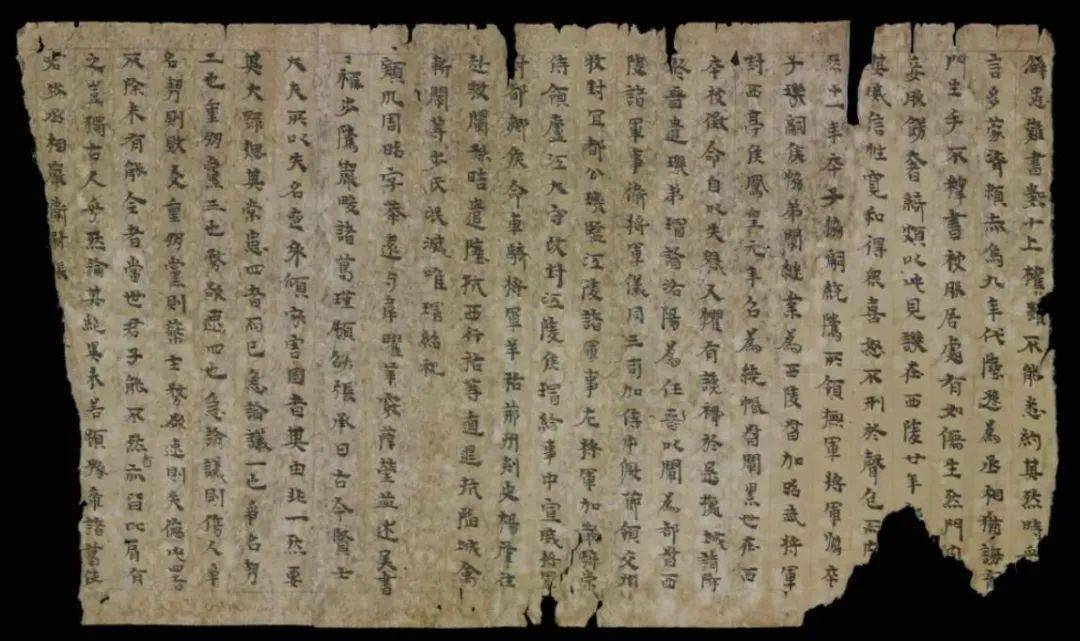 患難書數十上權雖不能悉約其然時
言多蒙濟賴赤烏九年代陸遜為丞相猶誨育
門生手不釋書被服居處有如儒生然門內
妾服飾奢綺頗以此見譏在西陵廿年
其威信性寬和得眾喜怒不形於聲色而內
然十一年卒子協嗣統騭所領撫軍將軍協卒
子璣嗣侯協弟闡繼業為西陵督加昭武將軍
封西亭侯鳳皇元年召為繞帳督闡累世在西
卒被徵命自以失職又懼有讒禍於是據城請降
於晉遣璣弟璿詣洛陽為任晉以闡為都督西
陵諸軍事衛將軍儀同三司加侍中假節領交州
牧封宜都公璣監江陵諸軍事左將軍加散騎常
侍領廬江太守改封江陵侯璿給事中宣威將軍
封都鄉侯命車騎將軍羊祜荊州刺史楊肇往
赴救闡孫晧遣陸抗西行祜等遁退抗陷城禽
斬闡等步氏泯滅唯璿紹祀
潁川周昭字恭遠與韋曜華覈薛瑩並述吳書
步騭嚴畯諸葛瑾顧劭張承曰古今賢士
大夫所以失名喪身傾家害國者其由非一然要
其大歸總其常患四者而已急論議一也爭名勢
二也重朋黨三也務欲速四也急論議則傷人爭
名勢則敗友重朋黨則蔽主務欲速則失德此四者
不除未有能全者當世君子能不然亦比肩有
之豈獨古人乎然論其絕異未若顧豫章諸葛使
君步丞相嚴衛尉張